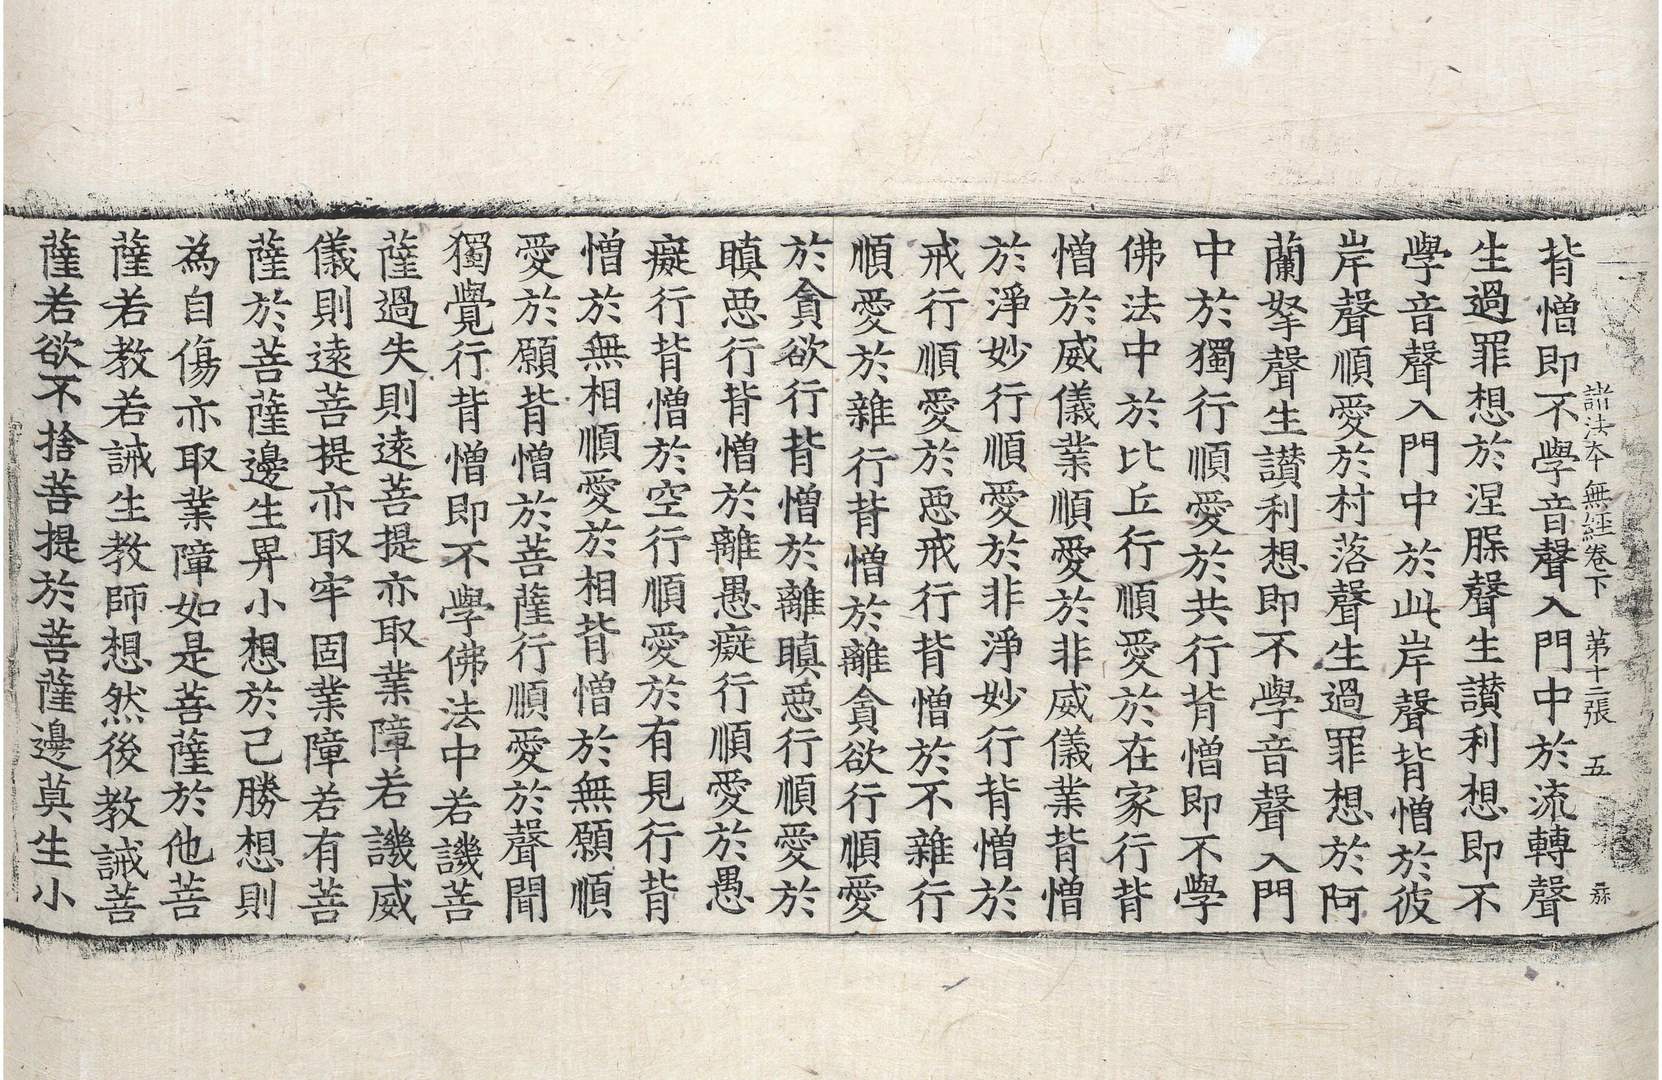 諸法本無經卷下 第十二張 五
背憎即不學音聲入門中於流轉聲
生過罪想於涅槃聲生讃利想即不
學音聲入門中於此岸聲背憎於彼
岸聲順愛於村落聲生過罪想於阿
蘭拏聲生讃利想即不學音聲入門
中於獨行順愛於共行背憎即不學
佛法中於比丘行順愛於在家行背
憎於威儀業順愛於非威儀業背憎
於淨妙行順愛於非淨妙行背憎於
戒行順愛於惡戒行背憎於不雜行
順愛於雜行背憎於離貪欲行順愛
於貪欲行背憎於離瞋惡行順愛於
瞋惡行背憎於離愚癡行順愛於愚
癡行背憎於空行順愛於有見行背
憎於無相順愛於相背憎於無願順
愛於願背憎於菩薩行順愛於聲聞
獨覺行背憎即不學佛法中若譏菩
薩過失則遠菩提亦取業障若譏威
儀則遠菩提亦取牢固業障若有菩
薩於菩薩邊生畀小想於己勝想則
為自傷亦取業障如是菩薩於他菩
薩若教若誡生教師想然後教誡菩
薩若欲不捨菩提於菩薩邊莫生小